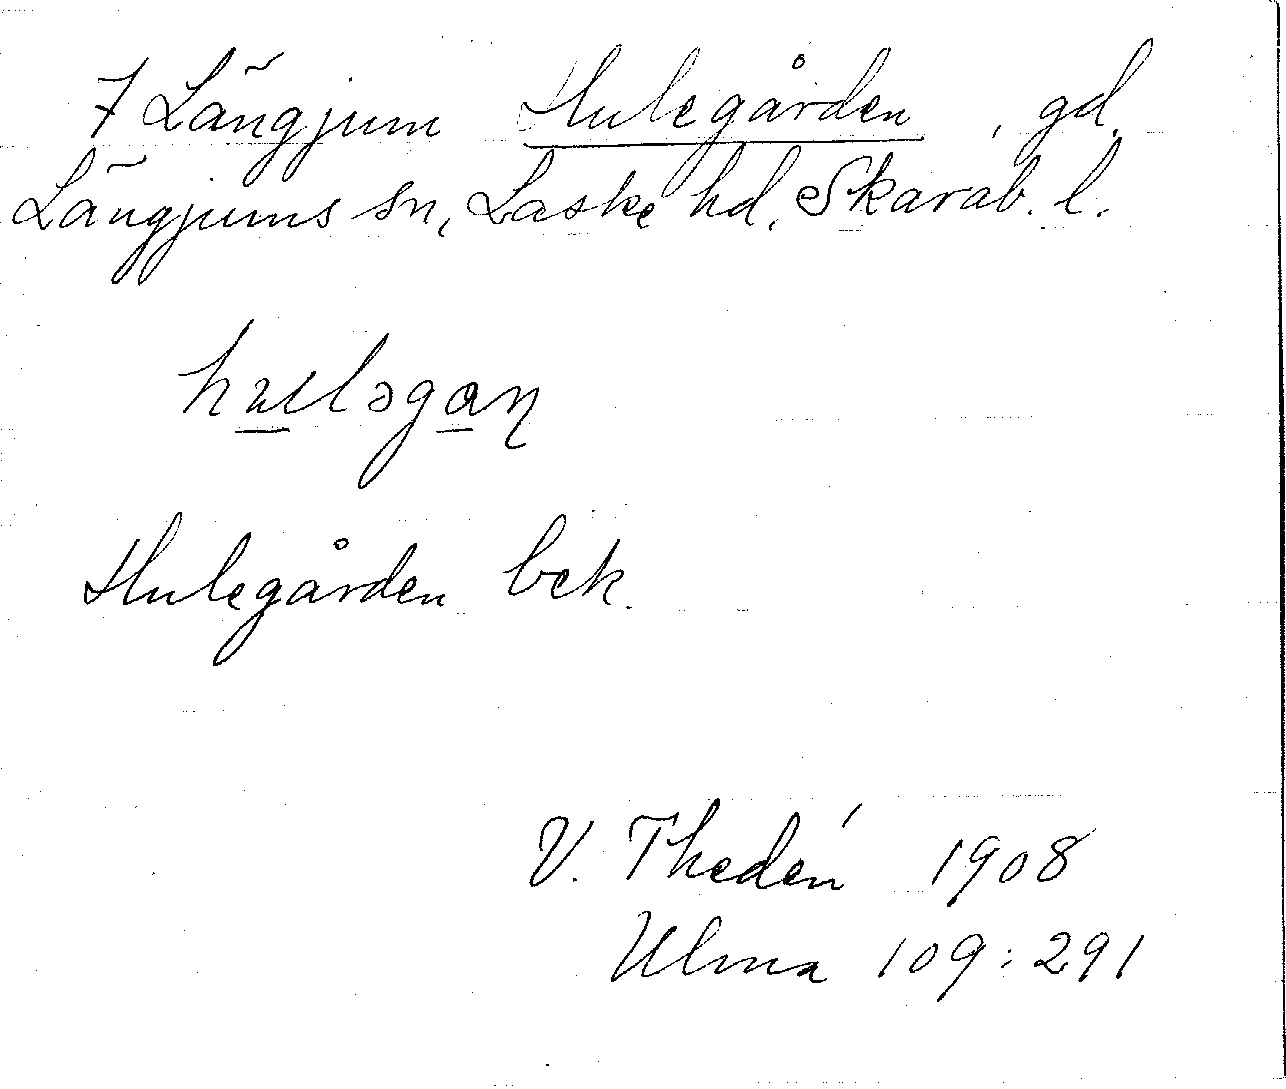 7 Längjum Hulegården, gd.
Längjums sn, Laske hd, Skarab. l.
hulləgaɳ
Hulegården bek.
V. Thedén 1908
Ulma 109:291